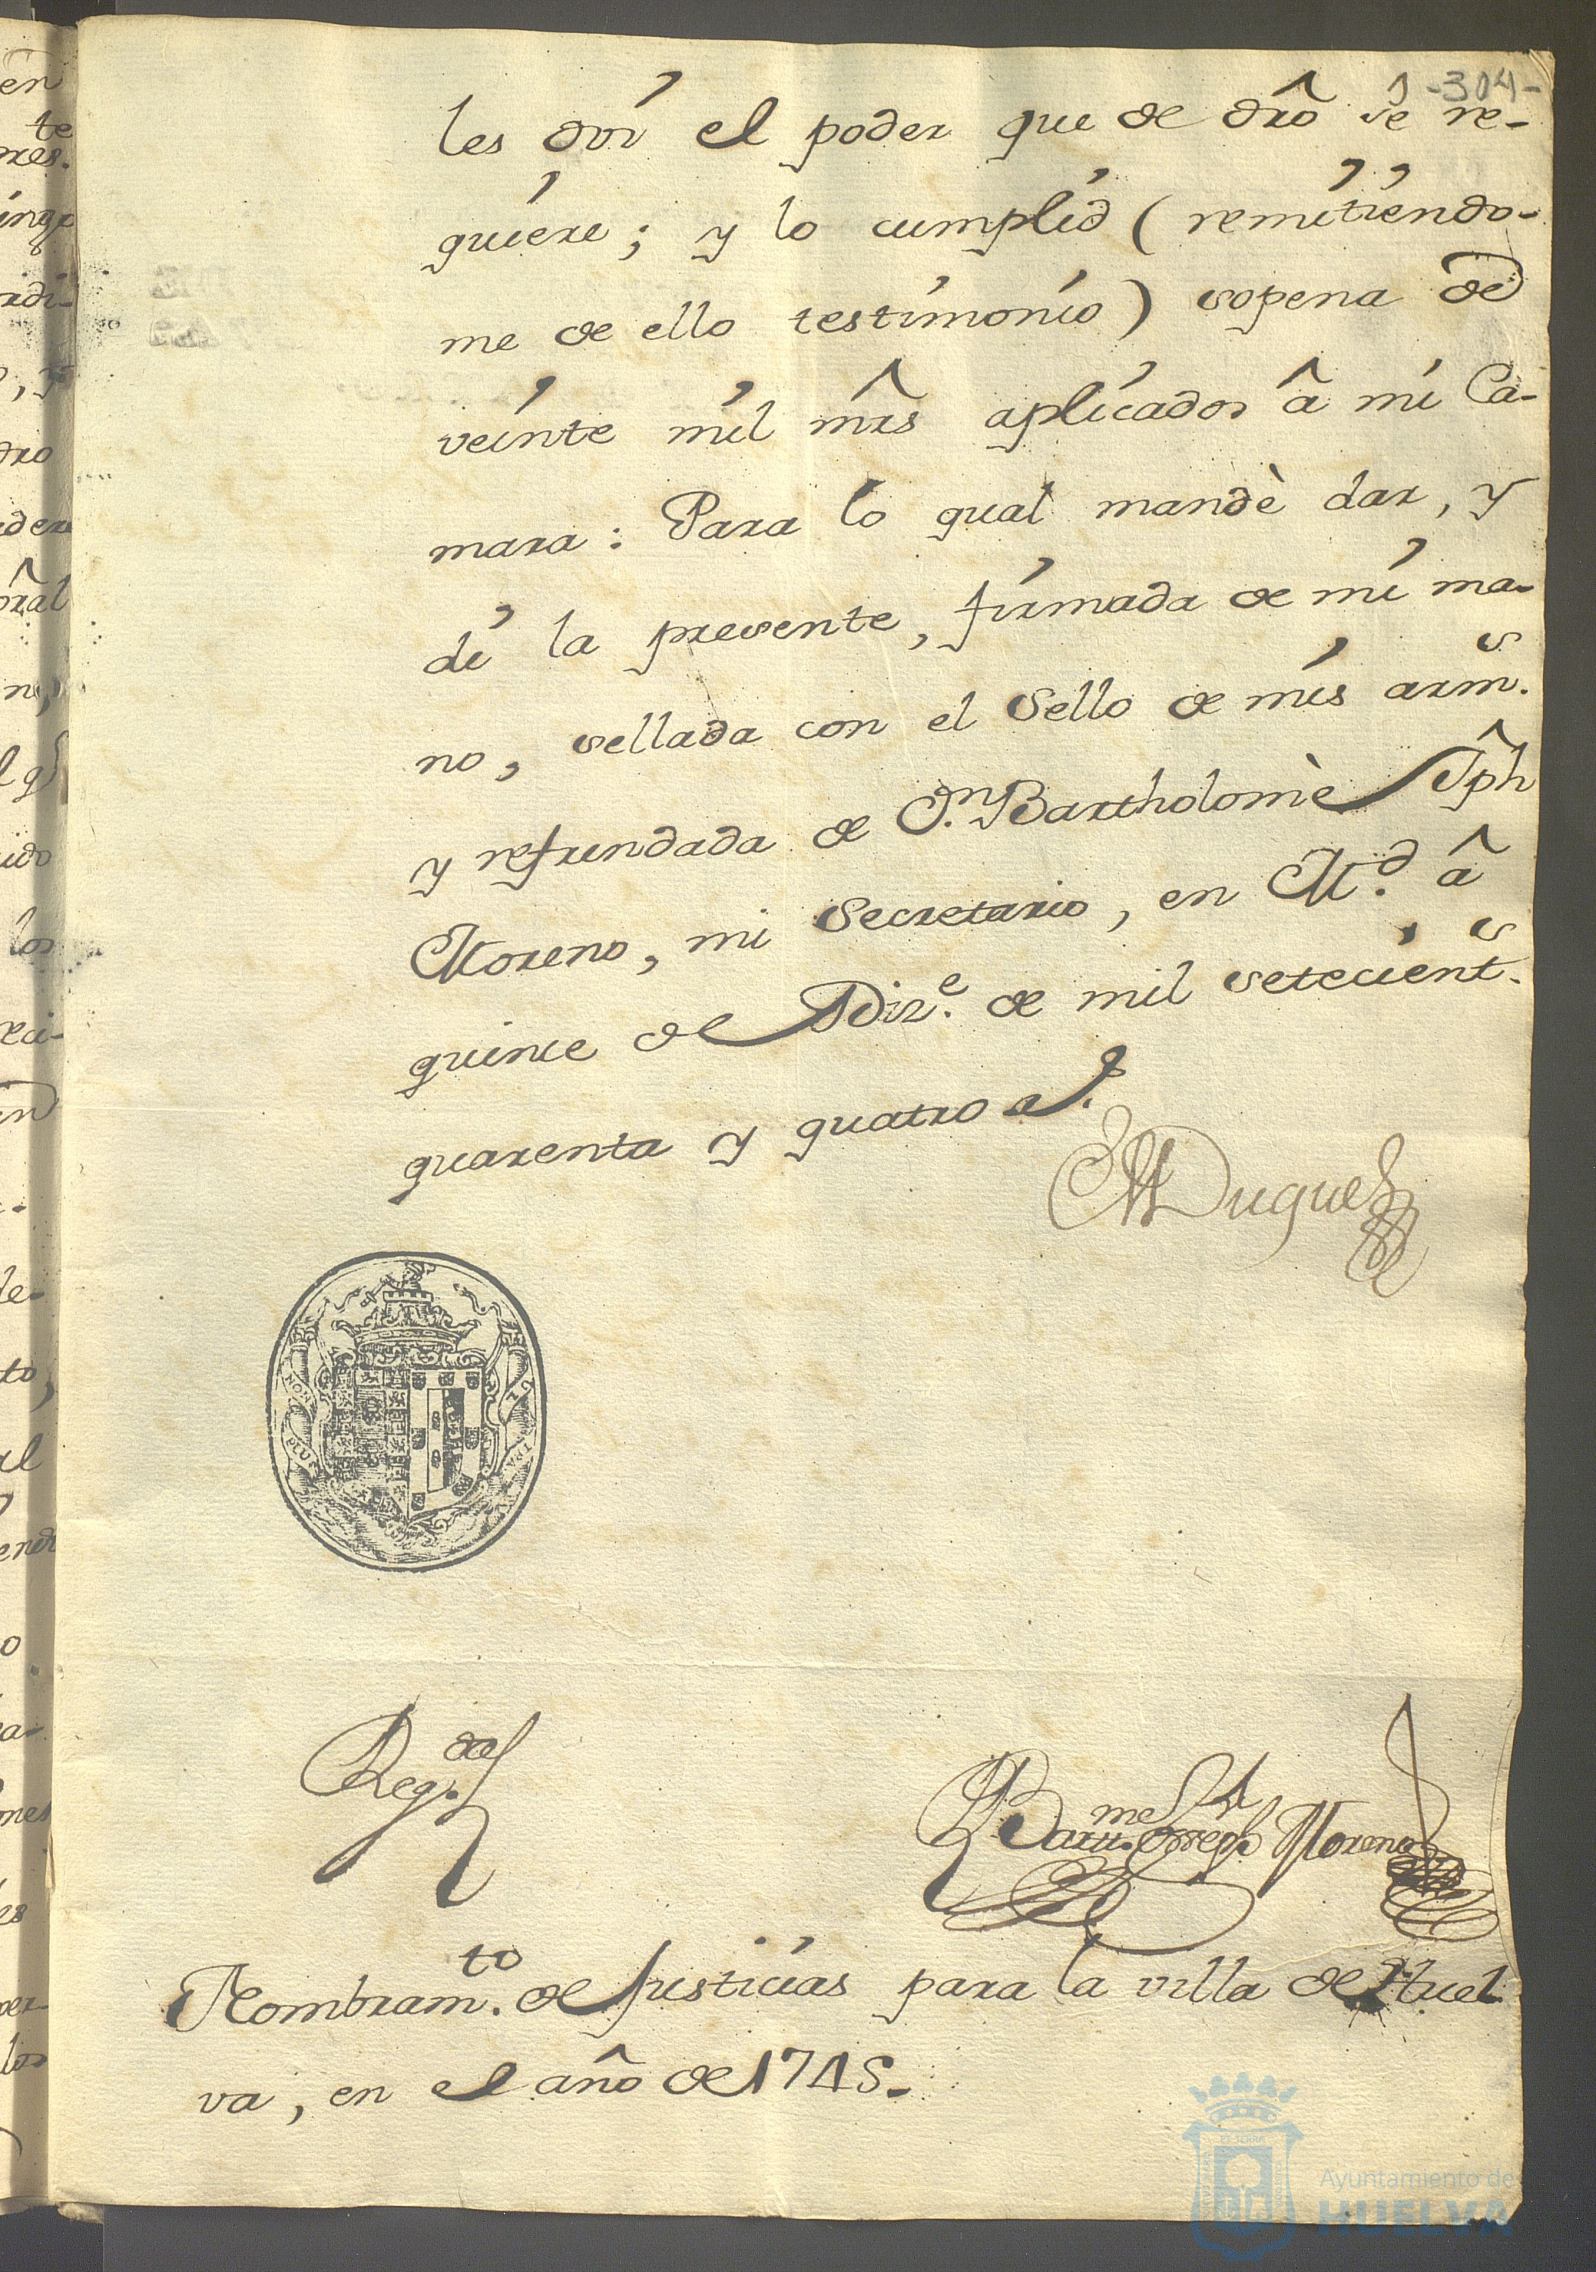 -304-
les doi el poder que de drô se re-
quiere; y lo cumplid (remitiendo-
me de ello testimonio) sopena de
veinte mil mrs̃ aplicados â mi Ca-
mara: Para lo qual mandè dar, y
di la presente, firmada de mi ma-
no, sellada con el Sello de mis arm.s
y refrendada de D.n Bartholomè Jph̃
Moreno, mi Secretario, en M.d â
quince de Diz.e de mil setecient.s
quarenta y quatro a.s
El Duque
NON PLUS ULTRA
Reg.da
Barth.me Joseph Moreno
Nombram.to de Justicias para la villa de Huel-
va, en el año de 1745.
Ayuntamiento de
HUELVA